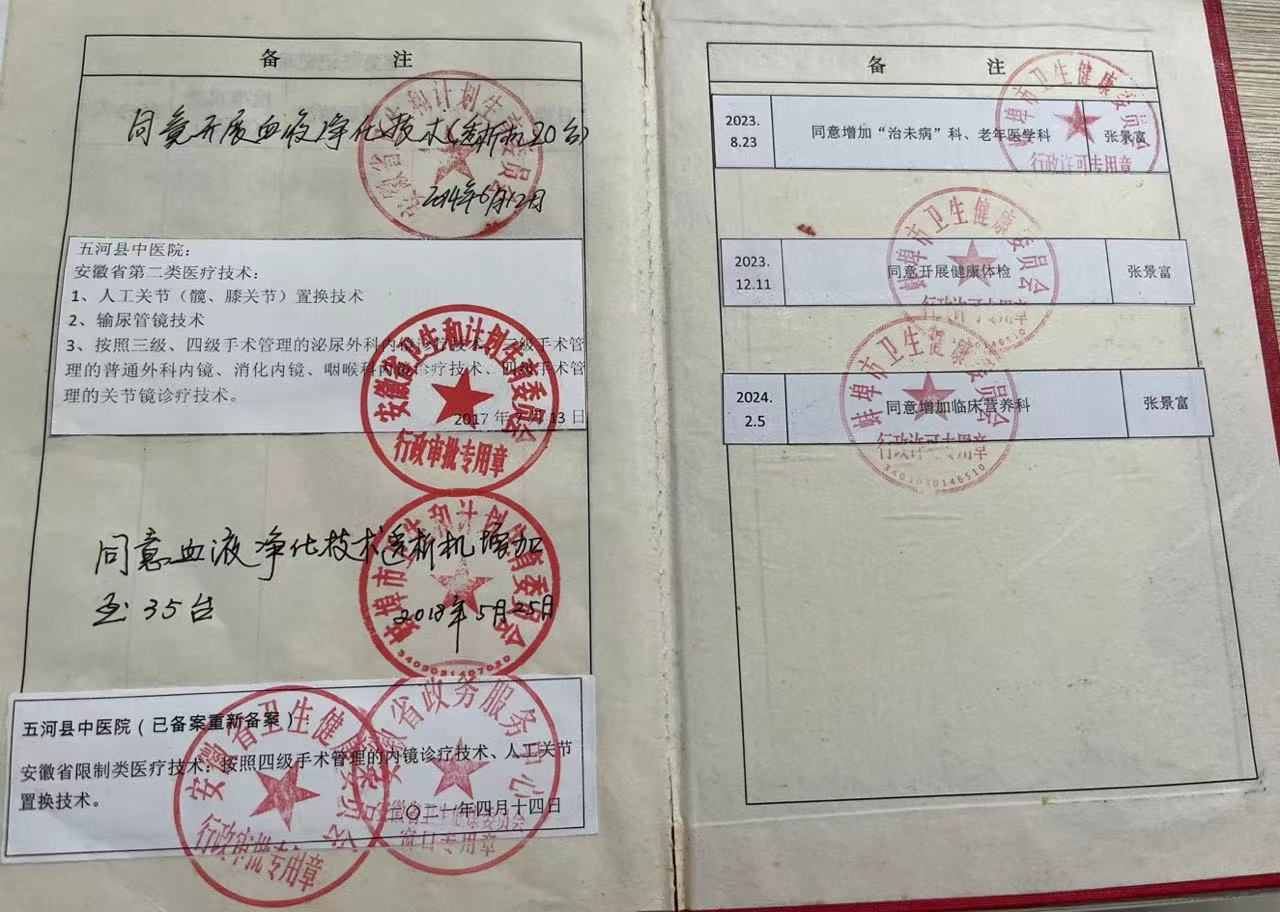 备 注
同意开展血液净化技术(透析机20台)
2014年6月12日
五河县中医院：
安徽省第二类医疗技术：
1、人工关节（髋、膝关节）置换技术
2、输尿管镜技术
3、按照三级、四级手术管理的泌尿外科内镜诊疗技术、三级手术管
理的普通外科内镜、消化内镜、咽喉科内镜诊疗技术、四级手术管
理的关节镜诊疗技术。
2017年7月13日
安徽省卫生和计划生育委员会
行政审批专用章
同意血液净化技术透析机增加
至35台
2018年5月25日
蚌埠市卫生和计划生育委员会
五河县中医院（已备案重新备案）：
安徽省限制类医疗技术：按照四级手术管理的内镜诊疗技术、人工关节
置换技术。
二〇二一年四月十四日
安徽省卫生健康委员会
行政审批专用章
安徽省政务服务中心
安徽省卫生健康委员会
窗口专用章
备 注
2023.
8.23
同意增加“治未病”科、老年医学科
张景富
蚌埠市卫生健康委员会
行政许可专用章
2023.
12.11
同意开展健康体检
张景富
蚌埠市卫生健康委员会
行政许可专用章
2024.
2.5
同意增加临床营养科
张景富
蚌埠市卫生健康委员会
行政许可专用章
3403030146510